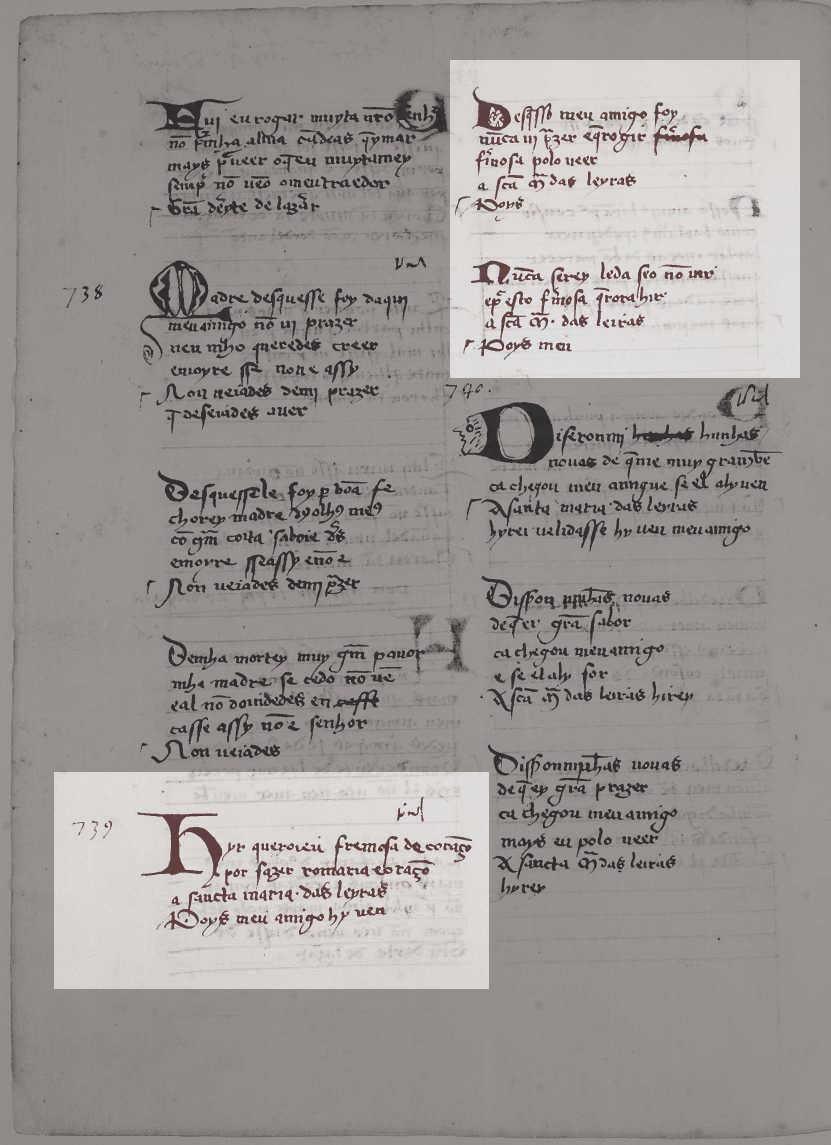 Aqui eu rogar muyta
nō
mays p̄ ueer oq̄ eu muyt amey
semp̄ nō ueō o meu traedor
Grā
738
Madre desquesse foy daqui
meu amigo nō ui prazer
neu mho queredes creer
emoyre sse non e assy
Non ueiades demi prazer
q̄ deseiades auer
Desquessele foy p̄ bōa fe
chorey madre dyolh9 me9
cō gm̄ coita saboie d̄s
emoyre sse assy enō e
Non ueiades demi p̄zer
Demha mortey muy gm̄ pauor
mha madre se cedo nō uē
eal nō douidedes en
casse assy nō e senhor
Non ueiades
739
Hyr queroieu fremosa de coraçō
por fazer romaria e oraçō
a sancta maria das leyras
Poys meu amigo hy uen
Desq̄sso meu amigo foy
nūca ui p̄zer eq̄rogir
fm̄osa polo ueer
a scā m̄ das leyras
Poys
Nūca serey leda seo nō uir
ep̄ esto fm̄osa q̄rora hir
a scā m̄. das leiras
Poys meu
740.
Diseronmi hunhas
nouas de q̄ me muy gram bē
ca chegou meu amigue se el aly uen
A santa maria das leyras
hyrei uelidasse hy uen meu amigo
nouas
de q̄ er grā sabor
ca chegou meu amigo
e se el aly for
A scā m̄ das leiras hirey
nouas
de q̄ ey grā prazer
ca chegou meu amigo
mays eu polo ueer
A sancta m̄ das leiras
hyrey